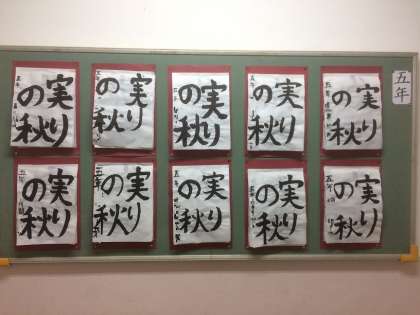 五年
実りの秋
実りの秋
実りの秋
実りの秋
実りの秋
実りの秋
実りの秋
実りの秋
実りの秋
実りの秋